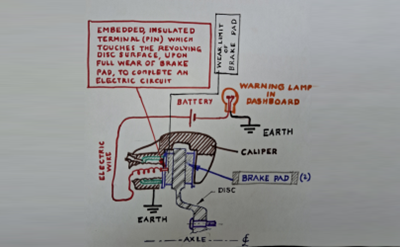 EMBEDDED, INSULATED
TERMINAL (PIN) WHICH
TOUCHES THE REVOLVING
DISC SURFACE, UPON
FULL WEAR OF BRAKE
PAD, TO COMPLETE AN
ELECTRIC CIRCUIT
WEAR LIMIT
OF
BRAKE PAD
WARNING LAMP
IN
DASHBOARD
BATTERY
EARTH
CALIPER
ELECTRIC
WIRE
BRAKE PAD (2)
DISC
EARTH
AXLE